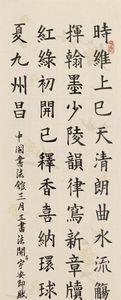 時維上巳天清朗曲水流觴
揮翰墨少陵韻律寫新章牘
紅綠初開已釋香喜納環球
夏九州昌
中國書法館三月三書法開字安即賦